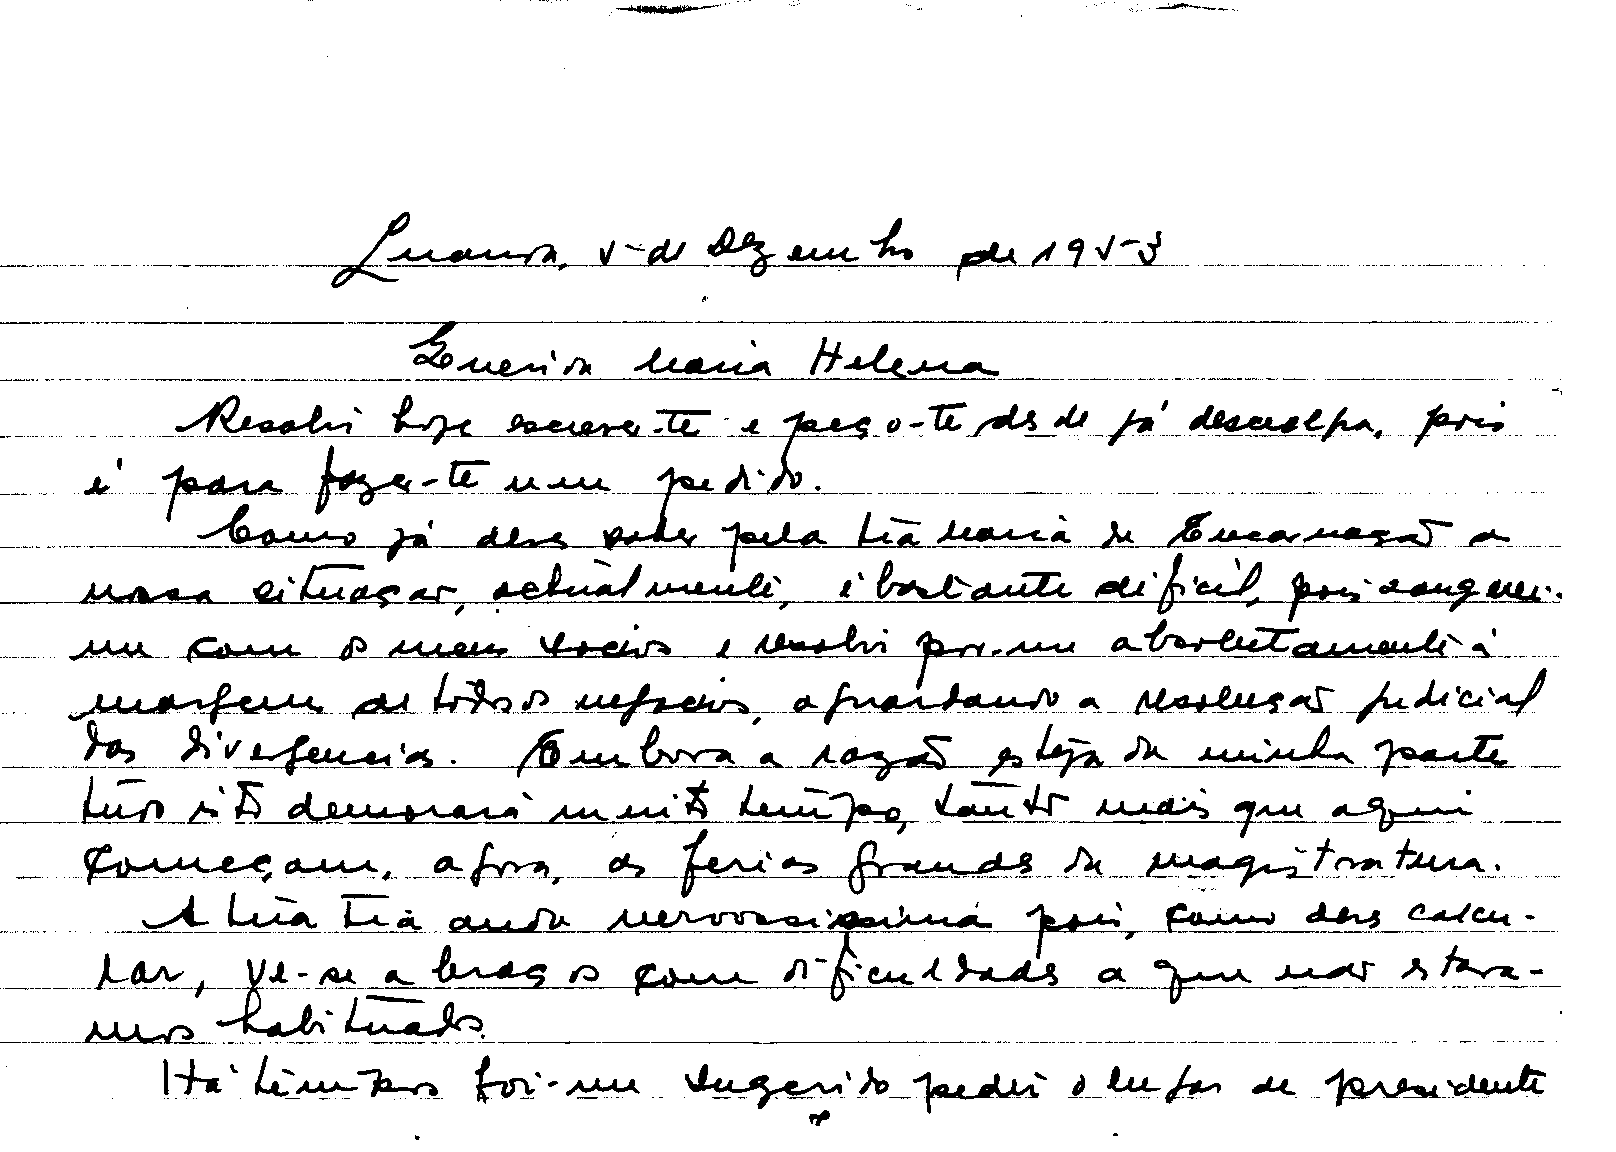 Luanda, 5 de Dezembro de 1953
Querida Maria Helena
Resolvi hoje escrever-te e peço-te desde já desculpa, pois
é para fazer-te um pedido.
Como já deves saber pela tia Maria da Encarnação a
nossa situaçao, actualmente, é bastante dificil, pois zanguei-
me com os meus socios e resolvi pôr-me absolutamente à
margem de todos os negocios, aguardando a resolução judicial
das divergencias. Embora a razão esteja da minha parte
tudo isto demorará muito tempo, tanto mais que aqui
começam, agora, as ferias grandes da magistratura.
A tua tia anda nervosissima pois, como deves calcu-
lar, vê-se a braços com dificuldades a que nao estava-
mos habituados.
Há tempos foi-me sugerido pedir o lugar de presidente